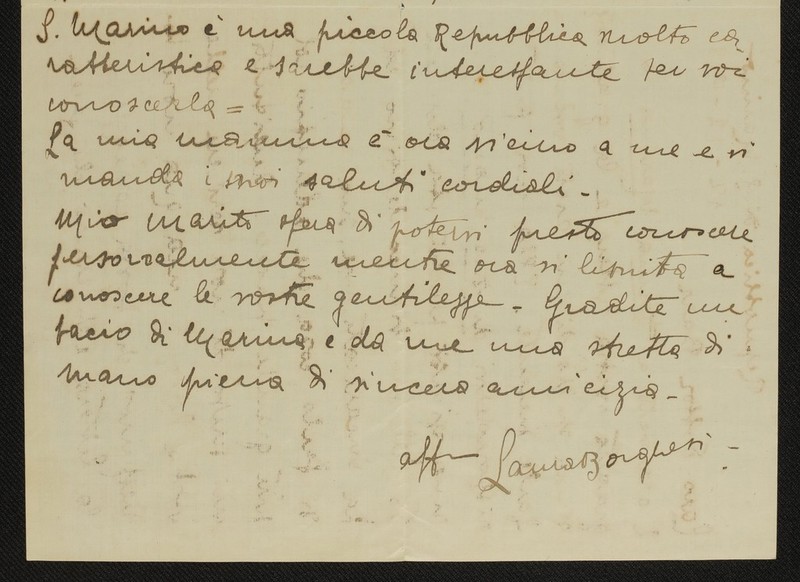 S. Marino è una piccola Repubblica molto ca
ratteristica e sarebbe interessante per voi
conoscerla =
La mia mamma è ora vicino a me e vi
manda i suoi saluti cordiali -
Mio marito spera di potervi presto conoscere
personalmente mentre ora si limita a
conoscere le vostre gentilezze - Gradite un
bacio di Marina e da me una stretta di
mano piena di sincera amicizia -
aff Laura Borghesi -